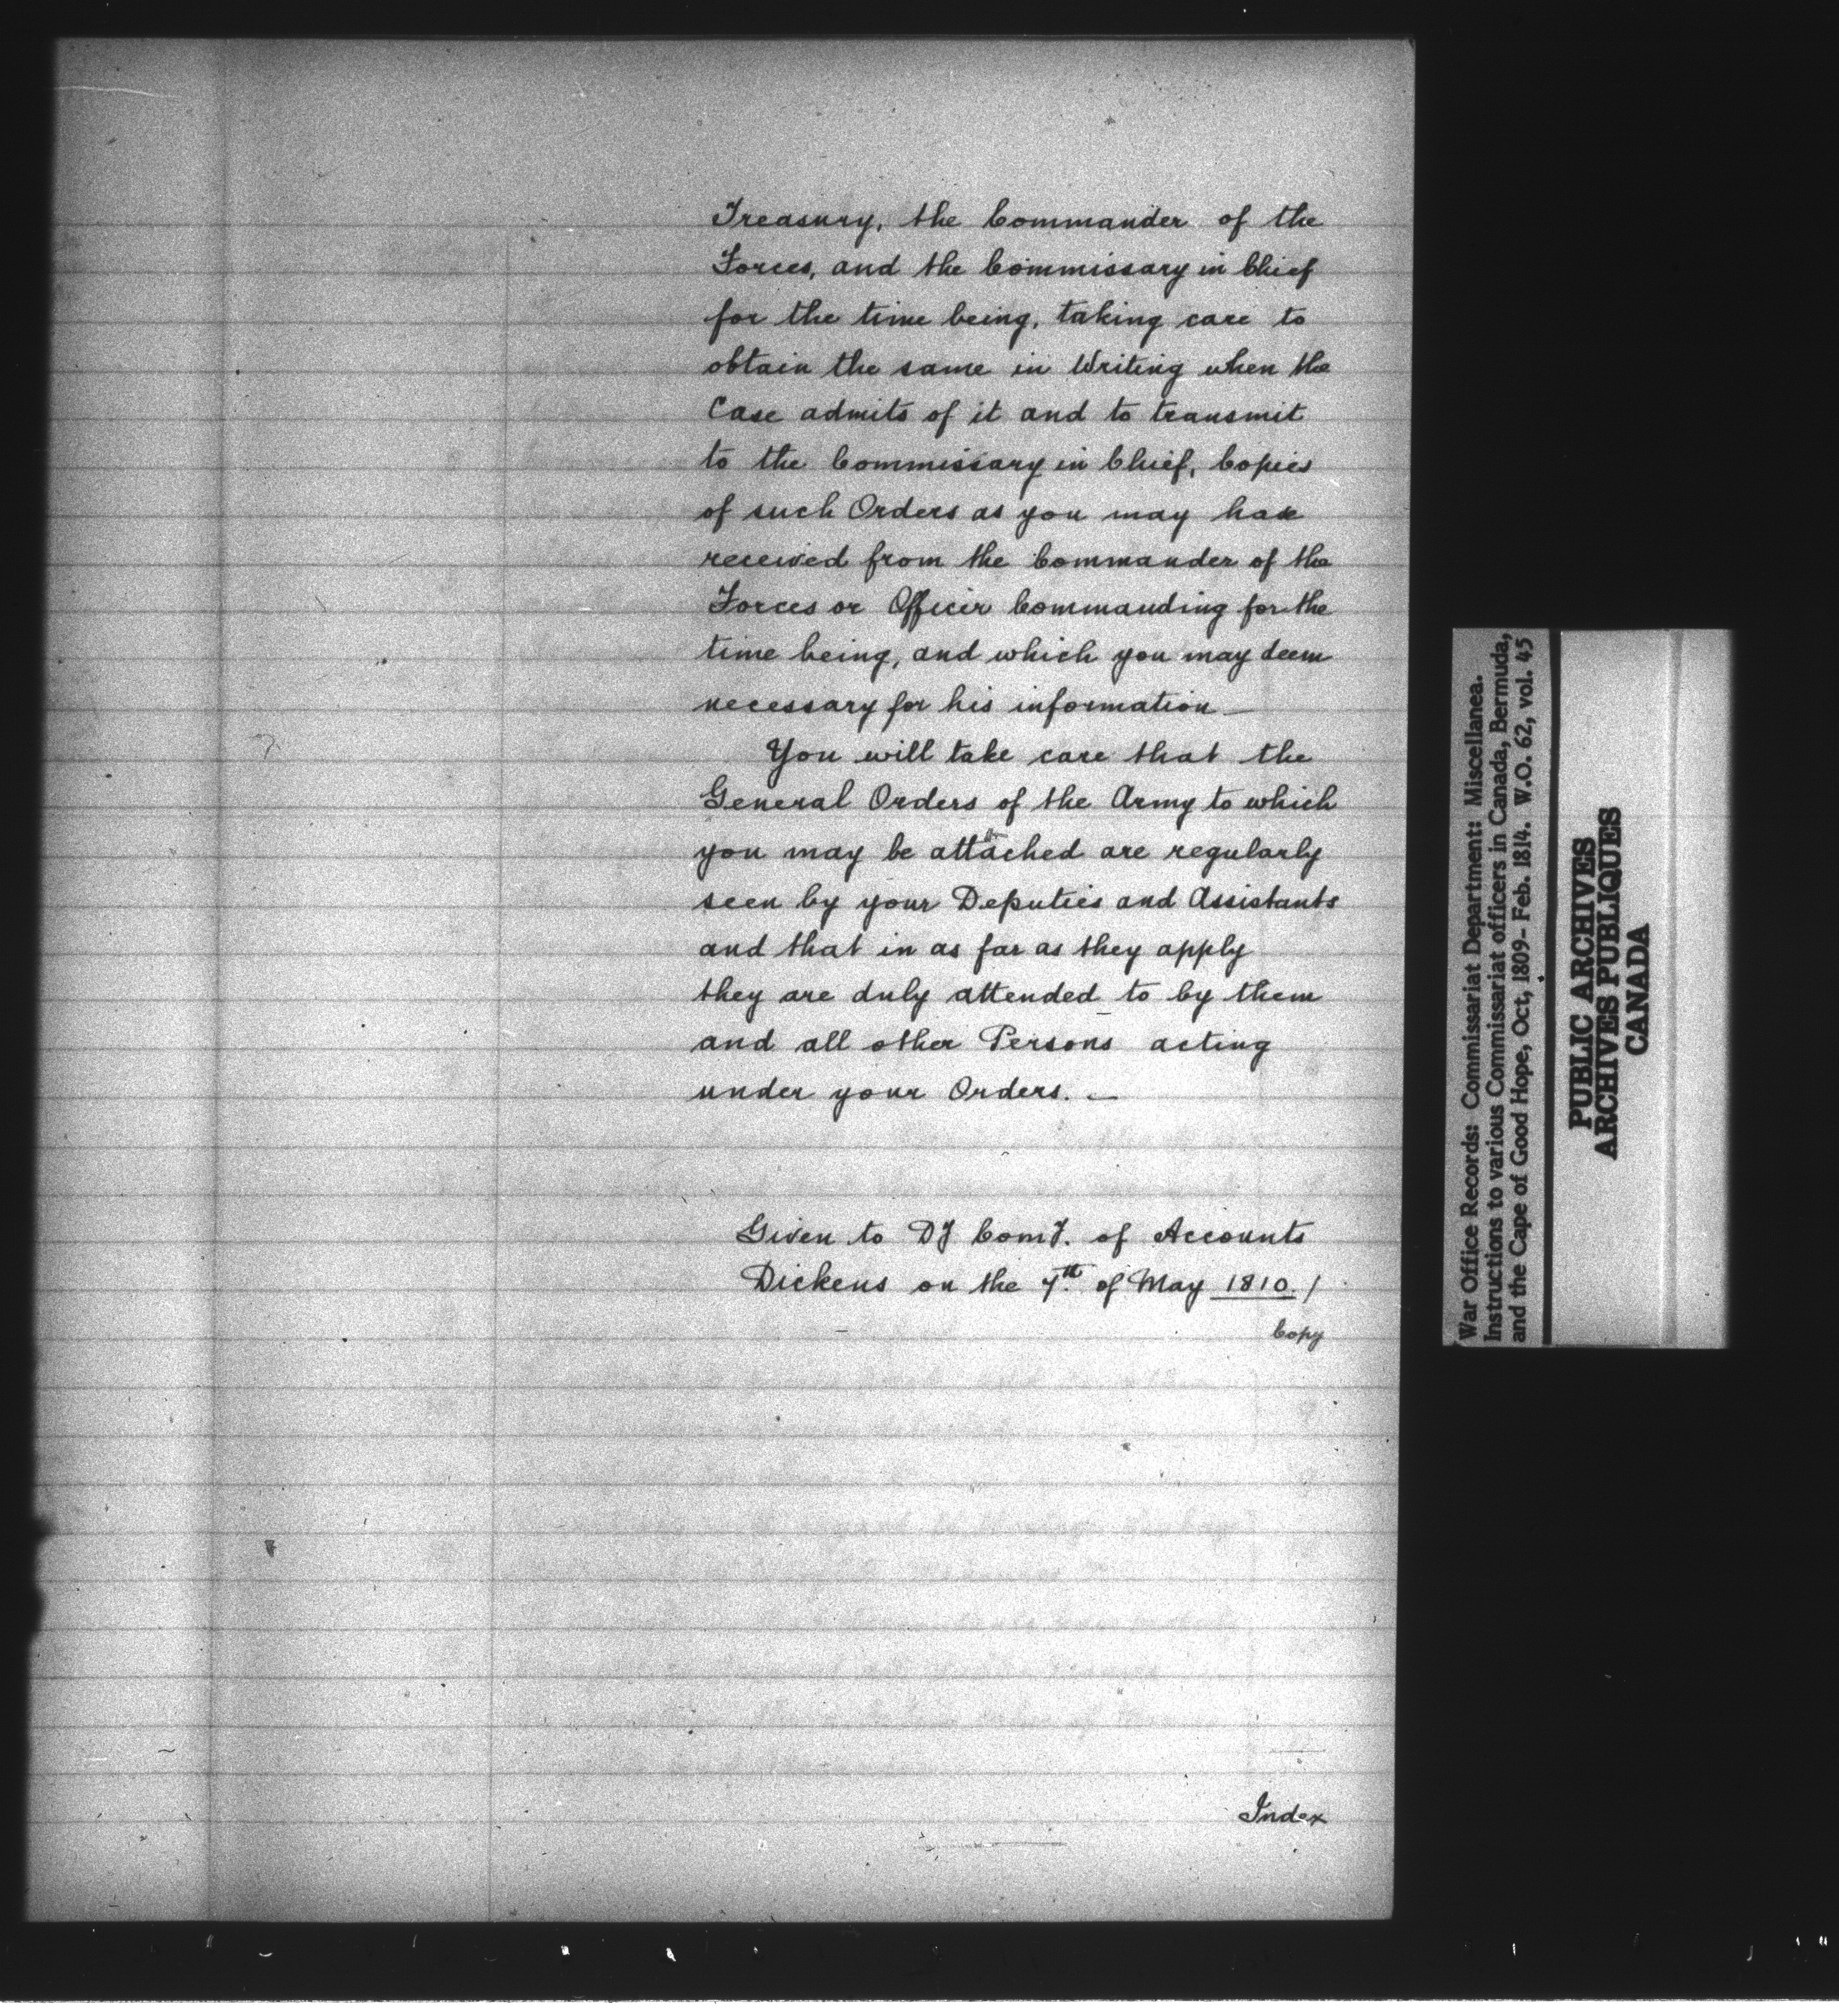 Treasury, the Commander of the
Forces, and the Commissary in Chief
for the time being, taking care to
obtain the same in Writing when the
Case admits of it and to transmit
to the Commissary in Chief, Copies
of such Orders as you may have
received from the Commander of the
Forces or Officer Commanding for the
time being, and which you may deem
necessary for his information —
You will take care that the
General Orders of the Army to which
you may be attached are regularly
seen by your Deputies and Assistants
and that in as far as they apply
they are duly attended to by them
and all other Persons acting
under your Orders. —
Given to Dy Comy. of Accounts
Dickens on the 7th of May 1810. /
Copy
Index
War Office Records: Commissariat Department: Miscellanea.
Instructions to various Commissariat officers in Canada, Bermuda,
and the Cape of Good Hope, Oct, 1809- Feb. 1814. W.O. 62, vol. 45
PUBLIC ARCHIVES
ARCHIVES PUBLIQUES
CANADA